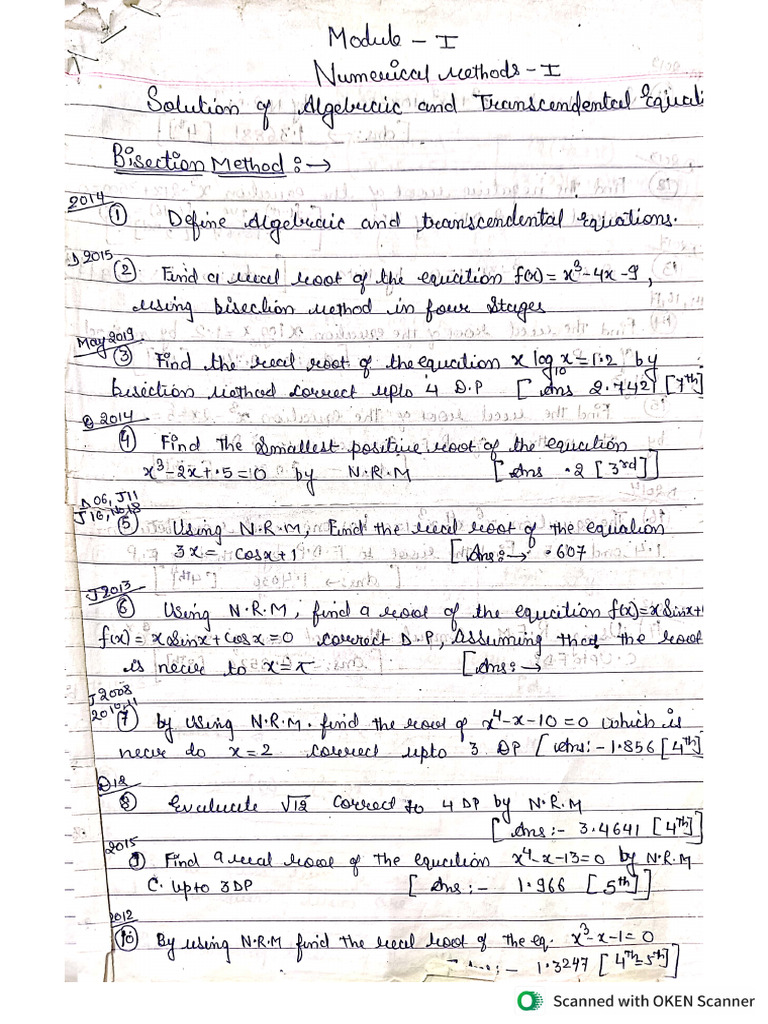 Module - I
Numerical Methods - I
Solution of Algebraic and Transcendental Equati
Bisection Method :→
2014
① Define Algebraic and transcendental equations.
D 2015
② Find a real root of the equation f(x) = x³-4x-9,
using bisection method in four stages
May 2019
③ Find the real root of the equation x log₁₀ x = 1.2 by
bisection method correct upto 4 D.P [Ans 2.742] [7th]
D 2014
④ Find the smallest positive root of the equation
x³-2x+.5=0 by N.R.M [Ans .2 [3rd]]
D 06, J11
J 16, N 18
⑤ Using N.R.M, Find the real root of the equation
3x = cosx+1 [Ans:→ .607
J2013
⑥ Using N.R.M, find a root of the equation f(x)=xSinx+
f(x) = xSinx+Cosx=0 correct D.P, Assuming that the root
is near to x=π [Ans:→
J2008
2010,11
⑦ by using N.R.M. find the root of x⁴-x-10=0 which is
near to x=2 correct upto 3 DP [Ans:- 1.856 [4th]
D18
⑧ Evaluate √12 correct to 4 DP by N.R.M
[Ans:- 3.4641 [4th]]
2015
⑨ Find a real root of the equation x⁴-x-13=0 by N.R.M
C. upto 3DP [Ans:- 1.966 [5th]]
2012
⑩ By using N.R.M find the real root of the eq. x³-x-1=0
Ans:- 1.3247 [4th-5th]]
Scanned with OKEN Scanner